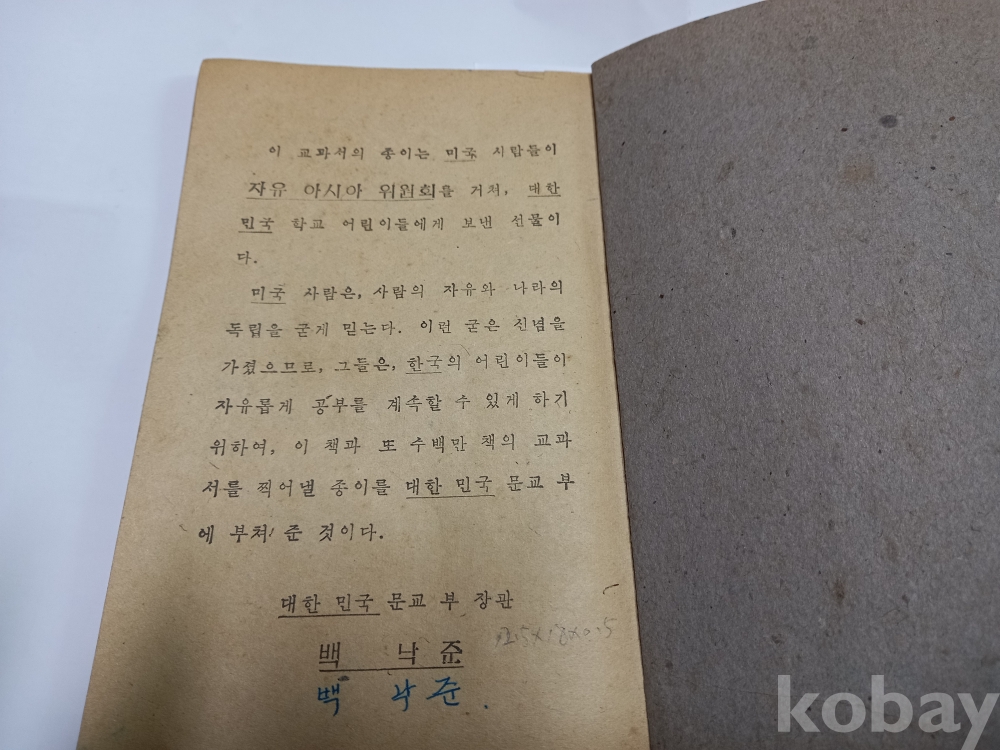 이 교과서의 종이는 미국 사람들이
자유 아시아 위원회를 거쳐, 대한
민국 학교 어린이들에게 보낸 선물이
다.
미국 사람은, 사람의 자유와 나라의
독립을 굳게 믿는다. 이런 굳은 신념을
가졌으므로, 그들은, 한국의 어린이들이
자유롭게 공부를 계속할 수 있게 하기
위하여, 이 책과 또 수백만 책의 교과
서를 찍어낼 종이를 대한 민국 문교 부
에 부쳐 준 것이다.
대한 민국 문교 부 장관
백 낙 준
12.5×18×0.5
백 낙 준.
kobay